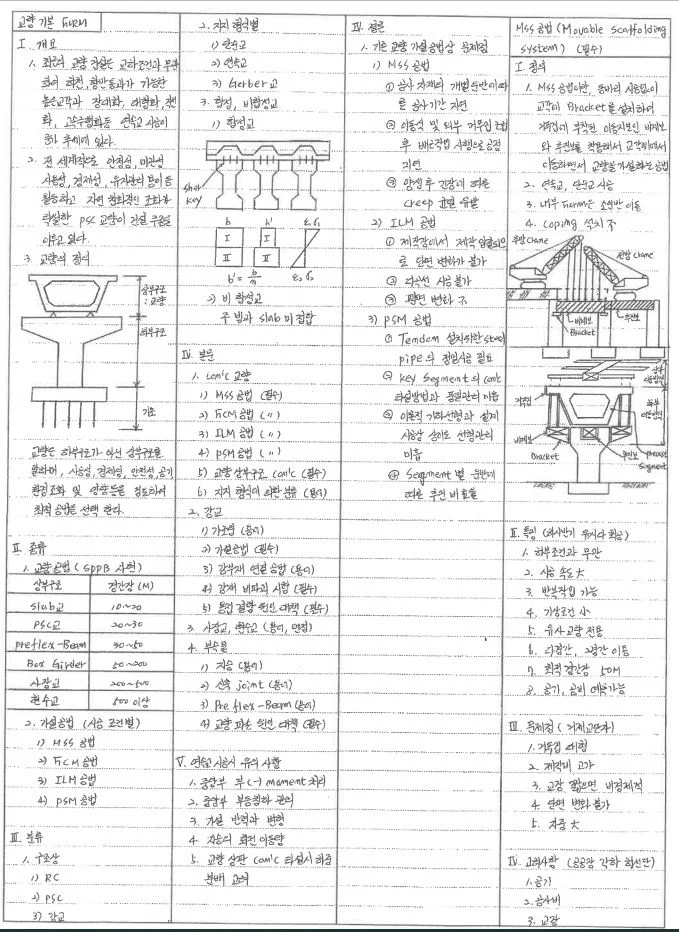 교량 기본 FORM
I. 개요
1. 최근의 교량 건설은 교하조건과 무관
하여 하천, 항만통과가 가능한
높은교각과 장대화, 대형화, 경
화, 고속주행화등 연속교 시공이
증가 추세에 있다.
2. 전 세계적으로 안정성, 미관성
사용성, 경제성, 유지관리 용이등
활용하고 자연 친화적인 조화가
탁월한 PSC 교량이 건설 주종을
이루고 있다.
3. 교량의 정의
상부구조
: 교량
하부구조
기초
교량은 하부구조가 아닌 상부구조를
말하며, 시공성, 경제성, 안전성, 공기
환경조화 및 영향등을 검토하여
최적 공법을 선택 한다.
II. 종류
1. 교량공법 (SPPB 사현)
상부구조 경간장 (M)
slab교 10~20
PSC교 20~30
preflex-Beam 30~50
Box Girder 50~200
사장교 200~500
현수교 500 이상
2. 가설공법 (시공 조건별)
1) MSS 공법
2) FCM 공법
3) ILM 공법
4) PSM 공법
III. 분류
1. 구조상
1) RC
2) PSC
3) 강교
2. 지지 형식별
1) 단순교
2) 연속교
3) Gerber교
3. 합성, 비합성교
1) 합성교
shear
key
b b'
I I
II II
b' = b/n
2) 비 합성교
주 빔과 slab 미접합
IV. 본문
1. con'c 교량
1) MSS 공법 (필수)
2) FCM 공법 (〃)
3) ILM 공법 (〃)
4) PSM 공법 (〃)
5) 교량 상부구조 con'c (필수)
6) 지지 형식에 의한 분류 (용어)
2. 강교
1) 가조립 (용어)
2) 가설공법 (필수)
3) 강부재 연결 공법 (용어)
4) 강재 비파괴 시험 (필수)
5) 용접 결함 원인 대책 (필수)
3. 사장교, 현수교 (용어, 면접)
4. 부속물
1) 지승 (용어)
2) 신축 joint (용어)
3) Preflex-Beam (용어)
4) 교량 파손 원인 대책 (필수)
V. 연속교 시공시 유의 사항
1. 중앙부 부(-) moment 처리
2. 중앙부 부등침하 관리
3. 가설 반력과 변형
4. 지승의 회전 이동량
5. 교량 상판 con'c 타설시 하중
분배 고려
VI. 결론
1. 기존 교량 가설공법상 문제점
1) MSS 공법
① 공사 자재의 개별 운반이 따
를 공사기간 지연
② 이동식 및 외부 거푸집 조립
후 배근작업 시행으로 공정
지연
③ 양생 후 긴장에 따른
creep 균열 유발
2) ILM 공법
① 제작장에서 제작 압출되므
로 단면 변화가 불가
② 다곡선 시공 불가
③ 평면 변화 不
3) PSM 공법
① Tendom 설치위한 steel
pipe의 정밀시공 필요
② key segment의 con'c
타설방법과 품질관리 미흡
③ 이동식 가설선형과 설계
시공상 상이로 선형관리
미흡
④ segment 별 운반에
따른 운반비 효율
MSS 공법 (Movable Scaffolding
system) (필수)
I. 정의
1. MSS 공법이란, 동바리 사용없이
교각에 Bracket를 설치하여
거푸집에 부착된 이동지보인 비계보
와 추진보를 작용해서 교각위에서
이동하면서 교량을 가설하는 공법
2. 연속교, 단순교 시공
3. 내부 Form은 소형만 이동
4. coping 설치 不
후방 crane
전방 crane
비계보
추진보
Bracket
상부
작업장
거푸집
하부
작업장
비계보
Bracket
추진보
precast
segment
II. 특징 (하시반기 유시다 최공)
1. 하부조건과 무관
2. 시공 속도 大
3. 반복작업 가능
4. 기상조건 小
5. 유사교량 전용
6. 다경간, 2경간 이동
7. 최적 경간장 50M
8. 공기, 공비 예측가능
III. 문제점 (거제교단자)
1. 거푸집 대형
2. 제작비 고가
3. 교장 짧으면 비경제적
4. 단면 변화 불가
5. 자중 大
IV. 고려사항 (공공장 각하 회선단)
1. 공기
2. 공사비
3. 교장